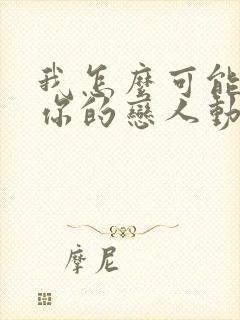 我怎麼可能
你的戀人動
摩尼